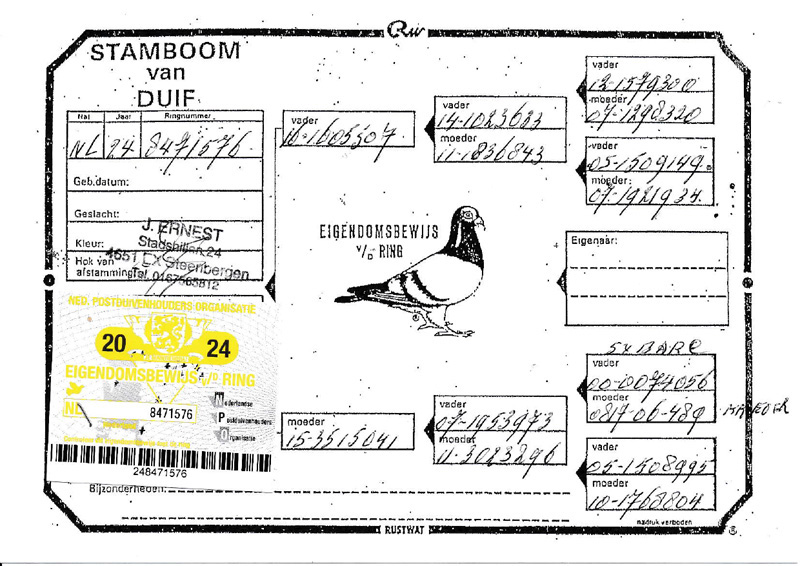 Rw
STAMBOOM
van
DUIF
Nat Jaar Ringnummer
NL 24 8471576
Geb.datum:
Geslacht:
Kleur:
Hok van
afstamming
J. ERNEST
Stadshillen 24
4651 EX Steenbergen
Tel. 0167565812
NED. POSTDUIVENHOUDERS ORGANISATIE
20 24
EIGENDOMSBEWIJS v/d RING
NL 8471576
Nederlandse
Postduivenhouders
Organisatie
248471576
Bijzonderheden:
vader
16-1605507
vader
14-1023683
moeder
11-1836843
vader
12-1579300
moeder
07-1298320
vader
05-1509149
moeder:
07-1921934
EIGENDOMSBEWIJS
v/d RING
Eigenaar:
moeder
15-3515041
vader
07-1953973
moeder
11-3023296
5x BARC
vader
00-0074056
moeder
0817-06-489
vader
05-1508995
moeder
10-1768804
RUSTWAT
nadruk verboden